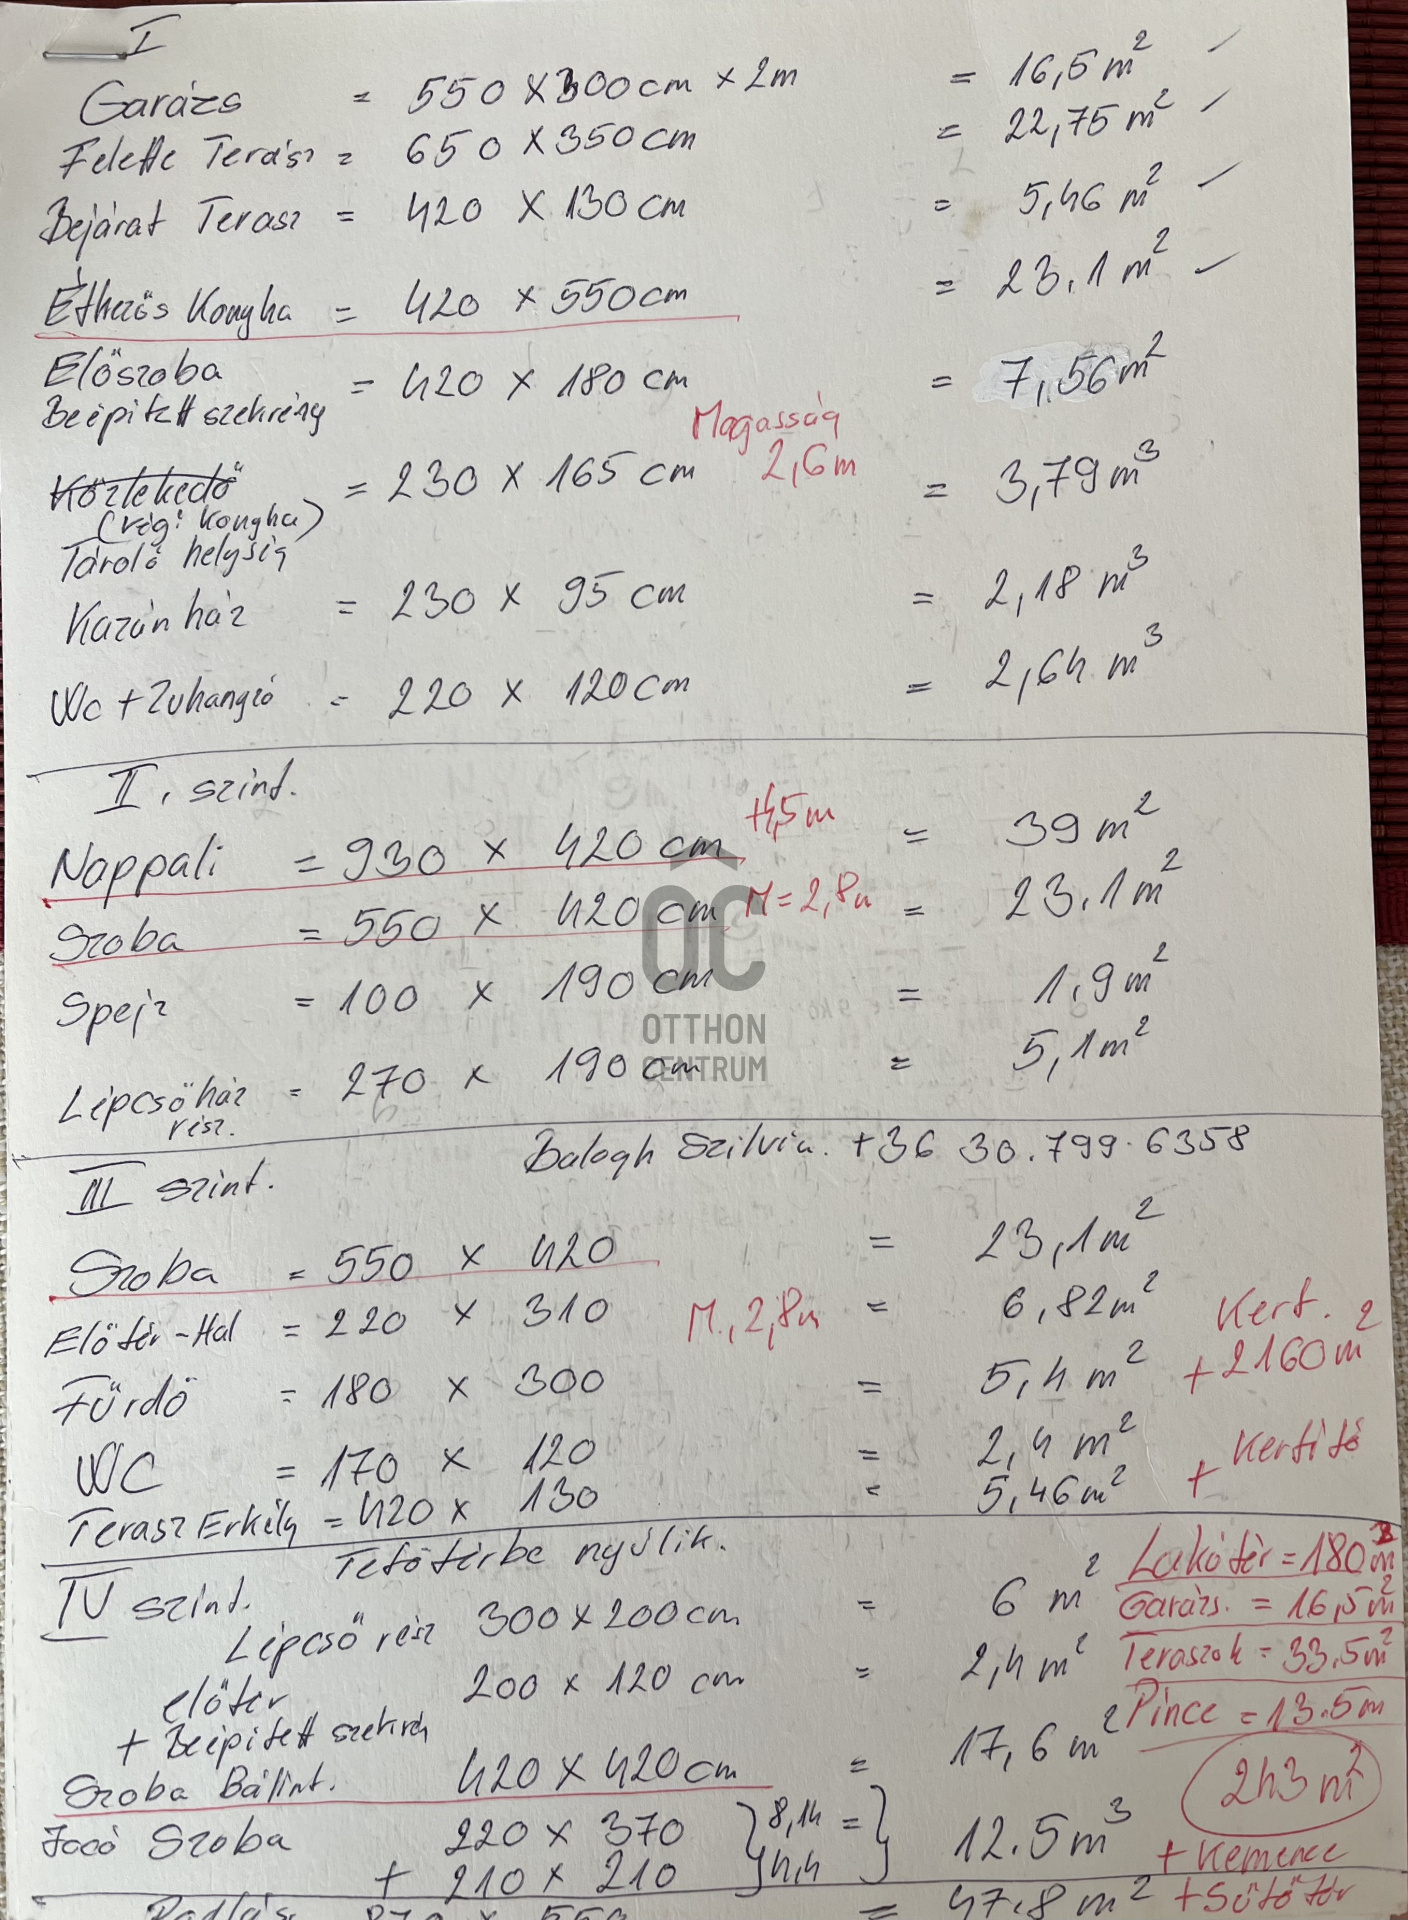 I
Garázs = 550 x 300 cm x 2m = 16,5 m²
Felette Terász = 650 x 350 cm = 22,75 m²
Bejárat Terasz = 420 x 130 cm = 5,46 m²
Étkezős Konyha = 420 x 550 cm = 23.1 m²
Előszoba = 420 x 180 cm = 7,56 m²
Beépitett szekrény
Magasság
2,6 m
Közlekedő = 230 x 165 cm = 3,79 m³
(régi konyha)
Tároló helység
Kazán ház = 230 x 95 cm = 2,18 m³
Wc + Zuhanyzó = 220 x 120 cm = 2,64 m³
II. szint.
Nappali = 930 x 420 cm = 39 m²
Szoba = 550 x 420 cm M = 2,8 m = 23.1 m²
Spejz = 100 x 190 cm = 1,9 m²
OC
OTTHON
CENTRUM
Lépcsőház = 270 x 190 cm = 5,1 m²
rész.
Balogh Szilvia. +36 30.799.6358
III szint.
Szoba = 550 x 420 = 23,1 m²
Előtér - Hal = 220 x 310 M., 2,8 m = 6,82 m²
Kert.
+ 2160 m²
Fürdő = 180 x 300 = 5,4 m²
WC = 170 x 120 = 2,4 m²
+ Kertitó
Terasz Erkély = 420 x 130 = 5,46 m²
Tetőtérbe nyúlik.
IV szint.
Lépcső rész 300 x 200 cm = 6 m²
Lakótér = 180 m²
Garázs. = 16,5 m²
előtér 200 x 120 cm = 2,4 m²
+ Beépitett szekrén
Teraszok = 33.5 m²
Pince = 13.5 m
Szoba Bálint. 420 x 420 cm = 17,6 m²
243 m²
Jocó Szoba 220 x 370 } 8,14 = } 12.5 m³
+ 210 x 210 } 4,4
+ Kemence
+ Sütőtér
Padlás = 47.8 m²